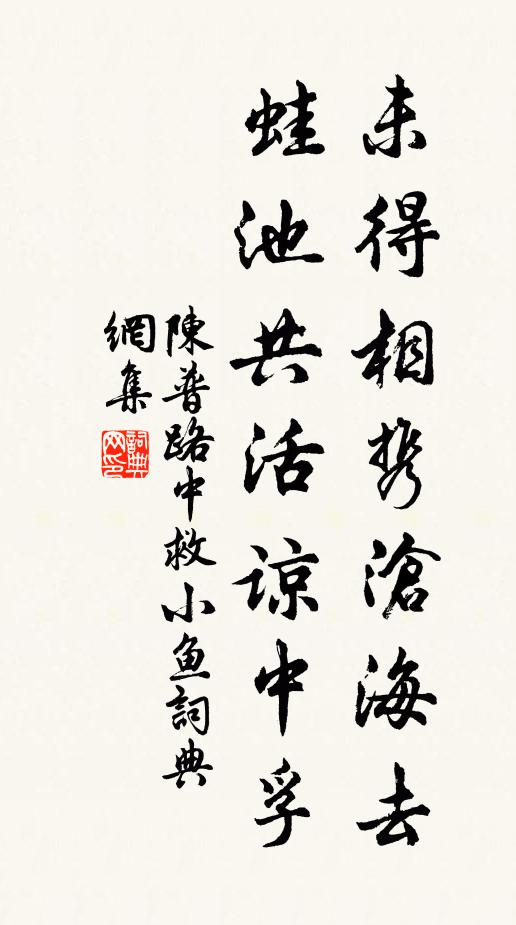 未得相携滄海去
蛙池共活諒中孚
陳普路中救小魚詞典
網集
詞典網印